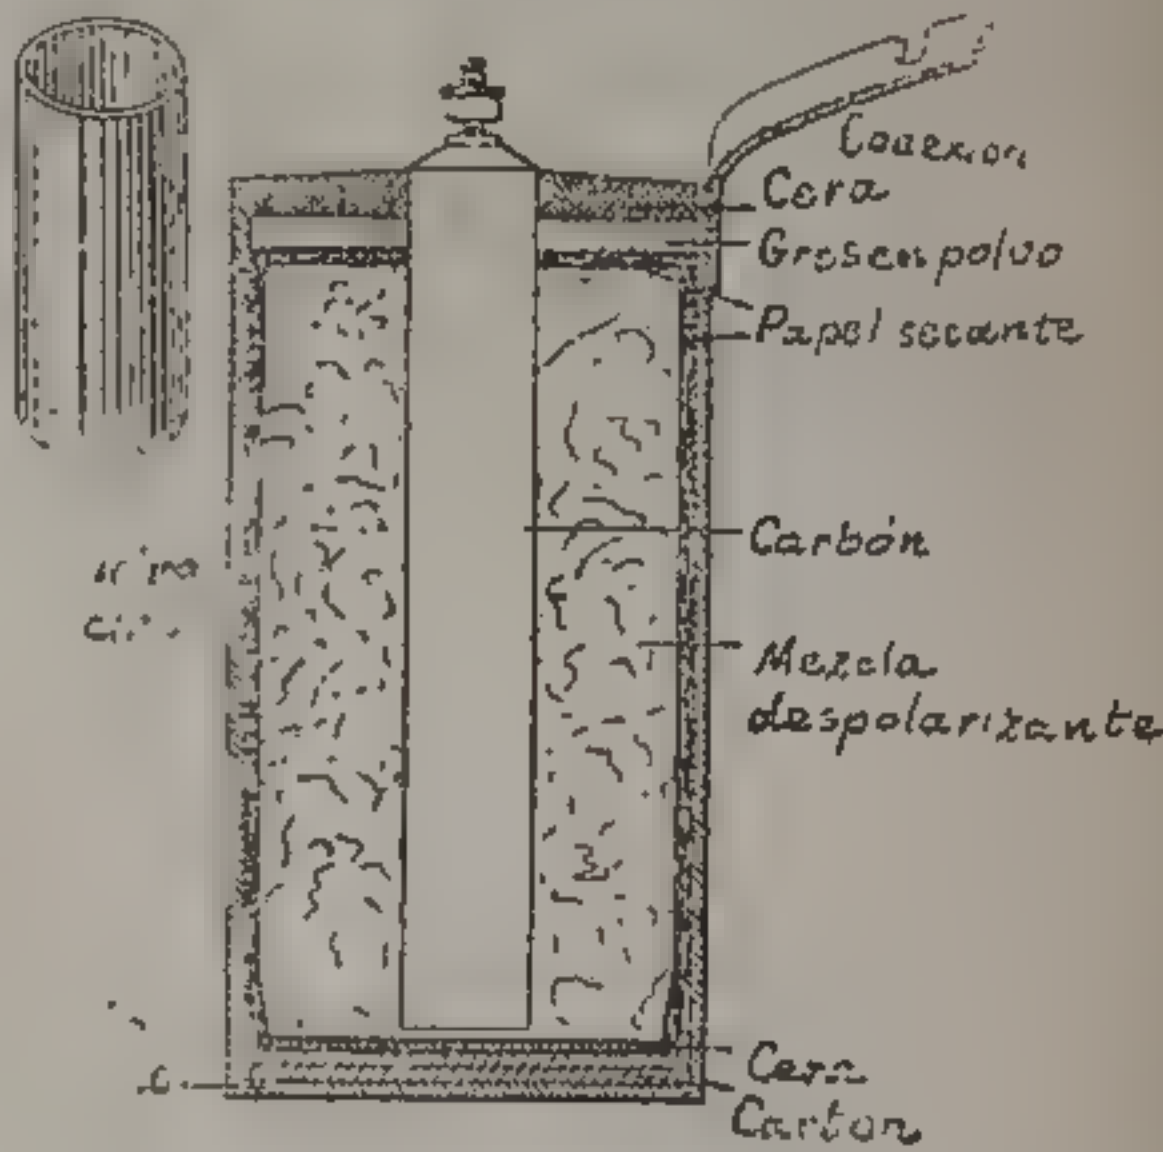 Conexion
Cera
Gres en polvo
Papel secante
Carbón
Mezcla
despolarizante
Cera
Carton